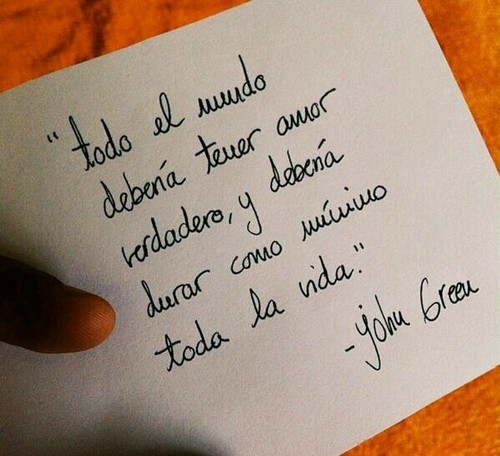 "todo el mundo
debería tener amor
verdadero, y debería
durar como mínimo
toda la vida."
-John Green